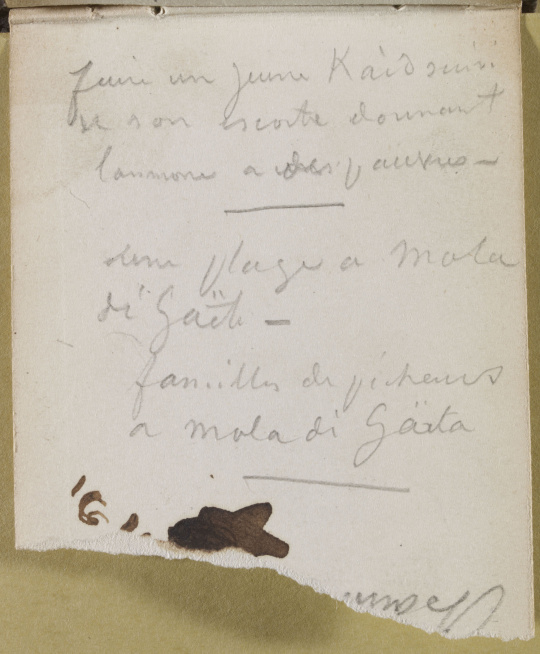 faire un jeune Kaïd suivi
de son escorte donnant
laumone a des pauvres –
une plage a Mola
di Gaëte –
familles de pêcheurs
a Mola di Gäeta